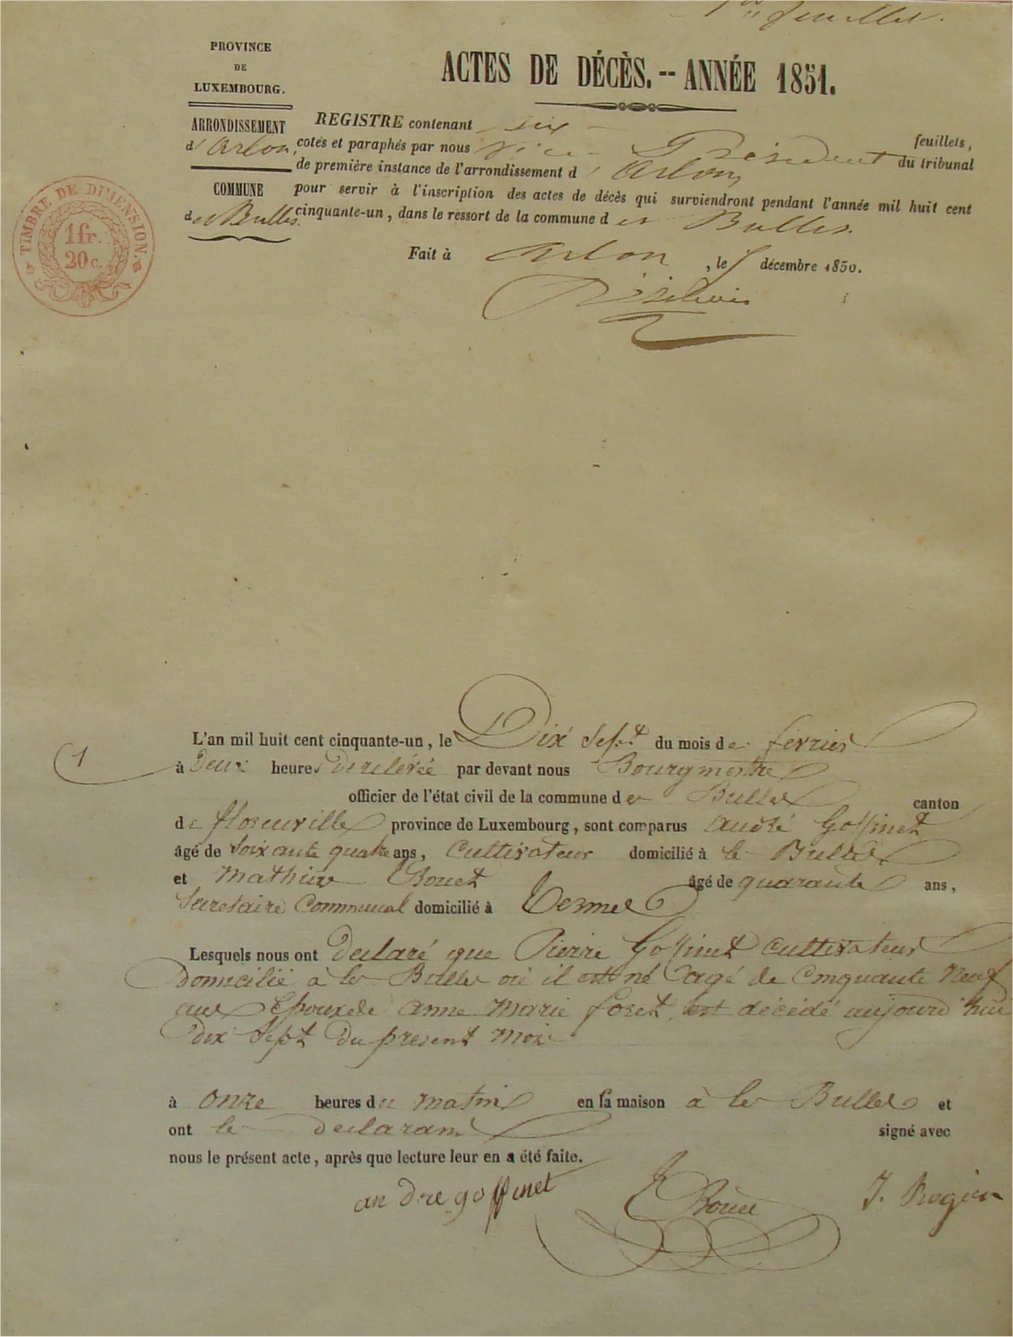 feuillet.
PROVINCE
DE
LUXEMBOURG.
ARRONDISSEMENT
d'Arlon,
COMMUNE
des Bulles.
TIMBRE DE DIMENSION.
1fr.
20c.
ACTES DE DÉCÈS.-- ANNÉE 1851.
REGISTRE contenant six feuillets,
cotés et paraphés par nous Vice-Président du tribunal
de première instance de l'arrondissement d'Arlon,
pour servir à l'inscription des actes de décès qui surviendront pendant l'année mil huit cent
cinquante-un, dans le ressort de la commune des Bulles.
Fait à Arlon, le décembre 1850.
1
L'an mil huit cent cinquante-un, le Dix Sept du mois de fevrier
à Deux heures de relevée par devant nous Bourgmestre
officier de l'état civil de la commune des Bulles canton
de florenville province de Luxembourg, sont comparus André Goffinet
âgé de Soixante quatre ans, Cultivateur domicilié à les Bulles
et Mathieu Bouet âgé de quarante ans,
Secretaire Communal domicilié à Termes
Lesquels nous ont Declaré que Pierre Goffinet Cultivateur
Domicilié à les Bulles où il est né agé de Cinquante Neuf
ans Epoux de Anne Marie foret, est décédé aujourd'hui
dix Sept du present mois
à onze heures du matin en sa maison à les Bulles et
ont les declarans signé avec
nous le présent acte, après que lecture leur en a été faite.
andre goffinet
Bouet
J. Rogier